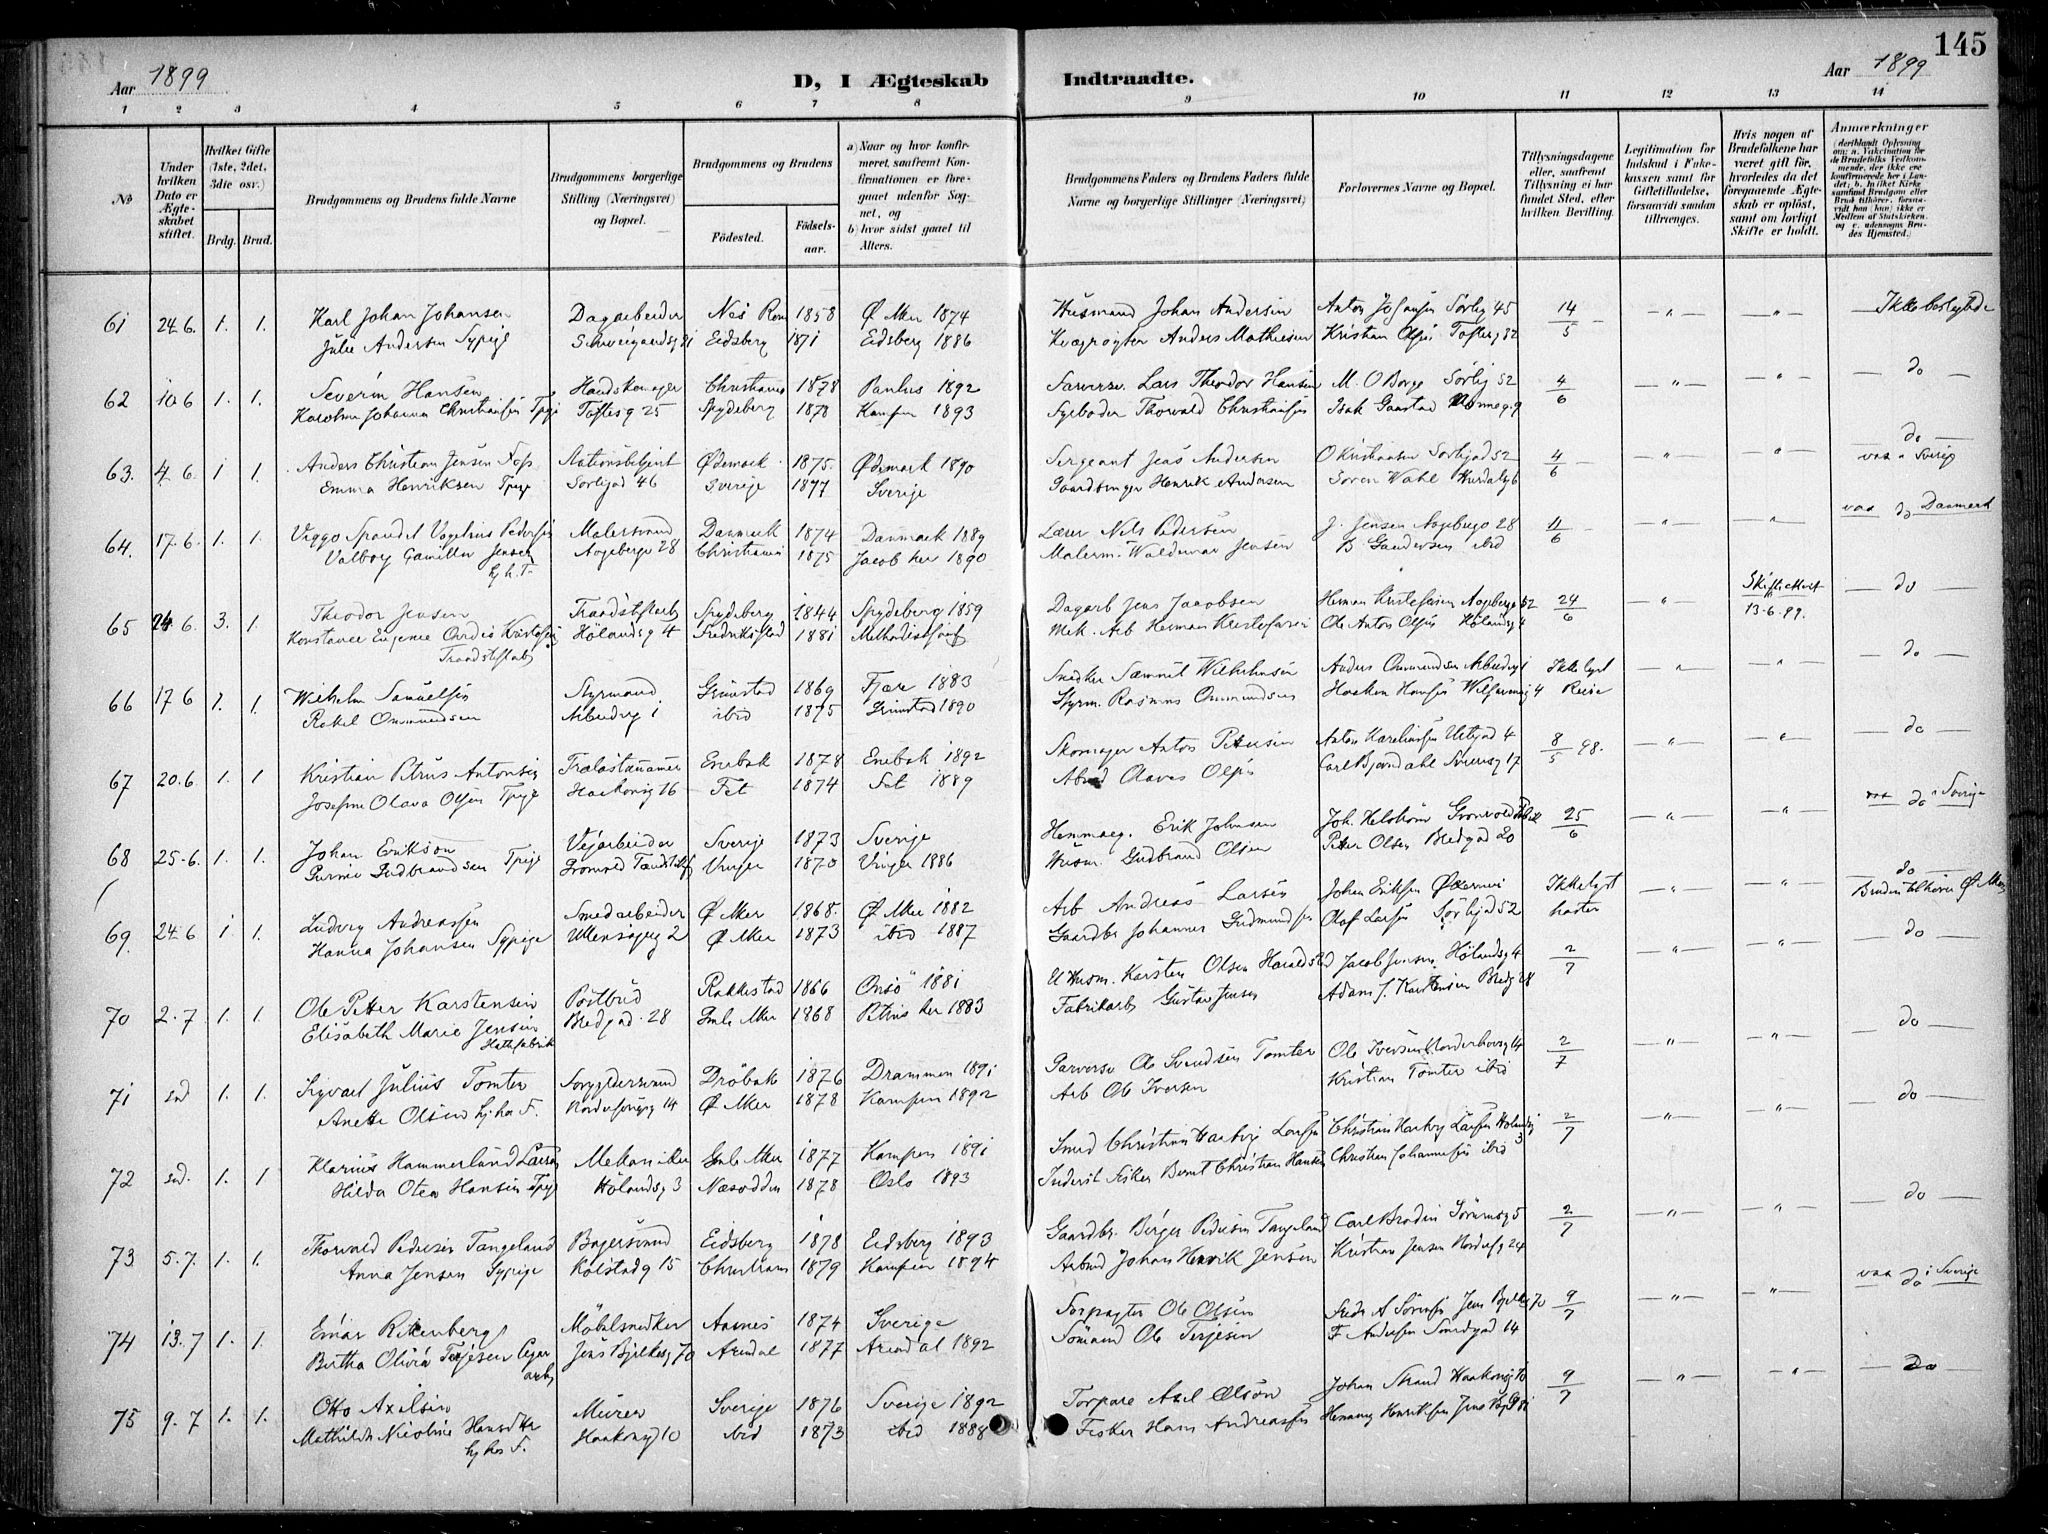 145
Aar 1899
D, I Ægteskab Indtraadte.
Aar 1899
1 2 3 4 5 6 7 8 9 10 11 12 13 14
No
Under hvilken Dato er Ægteskabet stiftet.
Hvilket Gifte (1ste, 2det, 3die osv.)
Brdg. Brud.
Brudgommens og Brudens fulde Navne
Brudgommens borgerlige Stilling (Næringsvei) og Bopæl.
Brudgommens og Brudens
Fødested.
Fødselsaar.
a) Naar og hvor konfirmeret, saafremt Konfirmationen er foregaaet udenfor Sognet, og
b) hvor sidst gaaet til Alters.
Brudgommens Faders og Brudens Faders fulde Navne og borgerlige Stillinger (Næringsvei)
Forlovernes Navne og Bopæl.
Tillysningsdagene eller, saafremt Tillysning ei har fundet Sted, efter hvilken Bevilling.
Legitimation for Indskud i Enkekassen samt for Giftetilladelse, forsaavidt saadan tiltrænges.
Hvis nogen af Brudefolkene har været gift før, hvorledes da det foregaaende Ægteskab er opløst, samt om lovligt Skifte er holdt.
Anmærkninger
61 24.6. 1. 1. Karl Johan Johansen Dagarbeider Nes Rom 1858 Ø Aker 1874 Husmand Johan Andersen Anton Johansen Sørlig 45 14/5 " " Ikke beslægtede
Julie Andersen Sypige Schweigaardsg 21 Eidsberg 1871 Eidsberg 1886 Kvægrøgter Anders Mathiesen Kristian Olsen Tofteg 32
62 10.6 1. 1. Severin Hansen Handskemager Christiania 1878 Paulus 1892 Lars Theodor Hansen M. O Borge Sørlig 52 4/6 " " do
Karoline Johanna Christiansen Toftesg 25 Spydeberg 1878 Kampen 1893 Thorvald Christiansen Isak Gaastad
63. 4.6. 1 1. Anders Christian Jensen Foss Stationsbetjent Ødemark 1875. Ødemark 1890 Sergeant Jens Andersen O Kristiansen Sørligad 52 4/6 " " do
Emma Henriksen Tpige Sørligad 46 Sverige 1877 Sverige Gaardbruger Henrik Andersen Søren Wahl Hurdalsg 6 vaa i Sverig
64. 17.6. 1. 1. Viggo Pedersen Malersvend Danmark 1874 Danmark 1889 Lærer Nils Pedersen J. Jensen Aagebergv 28 11/6 " " vaa do Danmark
Valborg Camilla Jensen hj.h.F. Aageberge 28 Christiania 1875 Jacob her 1890 Malerm. Waldemar Jensen ibid
65 24.6. 3. 1. Theodor Jensen Traadstiftarb Spydeberg 1844 Spydeberg 1859 Dagarb Jens Jacobsen Herman Kristofersen Aageberg 52 24/6 " 13-6-99. do
Konstance Eugenie Traadstiftarb Hølandsg 4 Fredrikstad 1881 Methodistsamf Mek. Arb Herman Kristofersen Ole Anton Olsen Hølandsg 4
66 17.6 1. 1. Wilhelm Samuelsen Styrmand Grimstad 1869 Fjære 1883 Snedker Samuel Wilhelmsen Anders Ommundsen Arbeiderg 1 Ikke lyst " " do
Rakel Ommundsen Arbeiderg 1 ibid 1875 Grimstad 1890 Styrm. Rasmus Ommundsen Haaken Hansen 4 Reise
67 20.6. 1. 1 Kristian Petrus Antonsen Trælasttømmer Enebak 1878 Enebak 1892 Skomager Anton Petersen Anton Karelinsen 4 8/5 98. " " do
Josefine Olava Olsen Tpige Haakonsg 16 Fet 1874 Fet 1889 Olaves Olsen Carl Bjørndahl 17
68 25.6. 1. 1. Johan Erikson Vejarbeider Sverige 1873 Sverige Hemmaeg. Erik Johnsen Joh. Helstrøm 25/6 " " vaa do i Sverige
Gudbrandsen Tpige Grønvold Vinger 1870 Vinger 1886 Husm. Gudbrand Olsen Peter Olsen Bredgad 20
69. 24.6 1 1. Ludvig Andreassen Smedarbeider Ø Aker 1868. Ø Aker 1882 Arb Andreas Larsen Johan Eriksen Ikke lyst " " do
Hanna Johansen Sypige Ullensagerg 2 Ø Aker 1873 ibid 1887 Gaardbr Johannes Gudmundsen Olaf Larsen Sørligad 52 haster Bruden tilhører Ø Aker
70 2.7 1. 1. Ole Petter Karstensen Postbud Rakkestad 1866 Onsø 1881 Husm. Karsten Olsen Haraldstad Jacob Jensen Hølandsg 4 2/7 " " do
Elisabeth Marie Jensen Bredgad. 28 Gmle Aker 1868 Petrus her 1883 Fabrikarb Gustav Jensen Adam J. Karstensen Bredg 28
71 sed 1. 1. Sigvart Julius Tomter Drøbak 1876 Drammen 1891 Garverse Ole Svendsen Tomter Ole Iversen Norderhovsg 14 2/7 " " do
Anette Olsen hj hos F. Norderhovsg 14 Ø Aker 1878 Kampen 1892 Arb Ole Iversen Kristian Tomter ibid
72 sed. 1. 1. Klarius Hammerlund Larsen Mekaniker Gmle Aker 1877 Kampen 1891 Smed Christian Hartvig Larsen Christian Hartvig Larsen Hølandsg 3 2/7 " " do
Hilda Otea Hansen Tpige Hølandsg 3 Næsodden 1878 Oslo 1893 Fisker Bernt Christian Hansen Christian Johannesen ibid
73 5.7. 1. 1. Thorvald Pedersen Tangeland Bagersvend Eidsberg 1878 Eidsberg 1893 Gaardbr. Børger Pedersen Tangeland Carl Brodin Sørumsg 5 2/7 " " do
Anna Jensen Sypige Kolstadg 15 Christiania 1879 Kampen 1894 Arbmd Johan Henrik Jensen Kristian Jensen Norderhg 24
74 13.7 1. 1. Einar Rikenberg Møbelsnedker Aasnes 1874 Sverige Forpagter Ole Olsen Fredr A Sørensen Jens Bjelkesg 70 9/7 " " vaa do i Sverige
Birtha Olivia Terjesen Cigararb Jens Bjelkesg 70 Arendal 1877 Arendal 1892 Sømand Ole Terjesen F Andersen Smedgad 14
75 9.7 1. 1. Otto Axelsen Murer Sverige 1876 Sverige 1892 Torpare Axel Olson Johan Strand Haakonsg 10 9/7 " " do
Mathilde Nicoline Hansdtr hj hos F. Haakonsg 10 ibid 1873 ibid 1888 Fisker Hans Andreassen Henning Henriksen